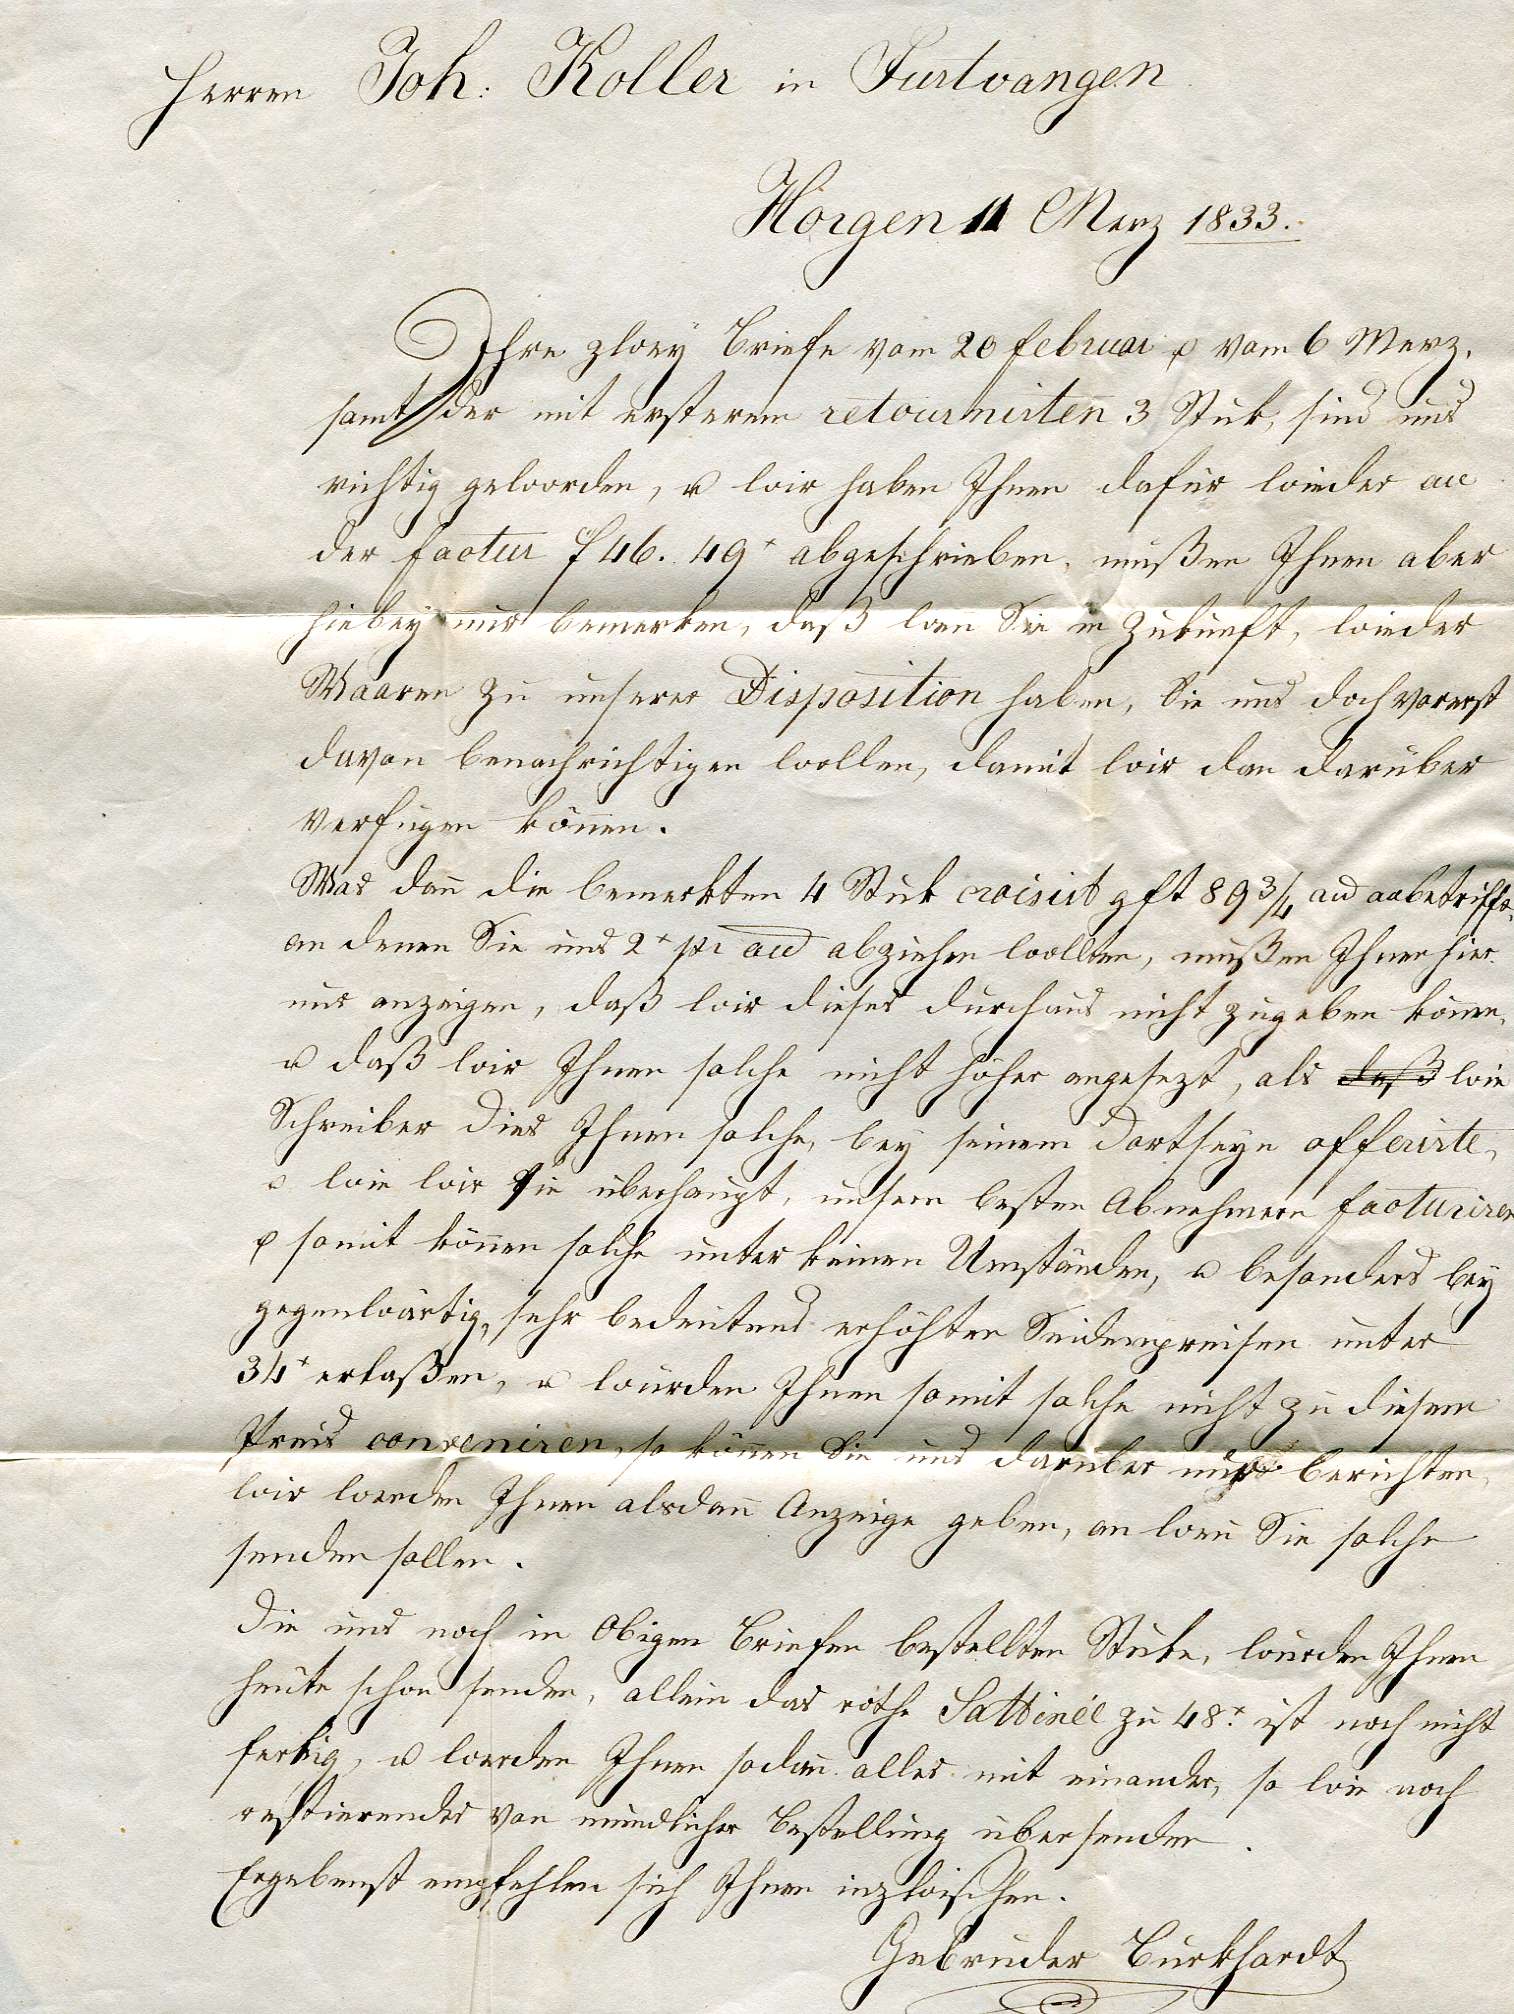 Herren Joh: Koller in Furtvangen
Horgen 11 Merz 1833.
Ihre zwey Briefe vom 20 Februar u vom 6 Merz,
samt der mit ersterem retournirten 3 Stük, sind uns
richtig geworden, u wir haben Ihnen dafür wieder an
der Factur f 46. 49x abgeschrieben, mußen Ihnen aber
hiebey nur bemerken, daß wen Sie in Zukunft, wieder
Waaren zu unserer Disposition haben, Sie uns doch vorerst
davon benachrichtigen wollen, damit wir dan darüber
verfügen können.
Was dan̄ die bemerkten 4 Stük croisirt 89 3/4 anbetrifft,
an denen Sie uns 2x pr abziehen wollten, mußen Ihnen hier
nur anzeigen, daß wir dieses durchaus nicht zugeben könen,
u daß wir Ihnen solche nicht höher angesezt, als daß wie
Schreiber dies Ihnen solche, bey seinem dortseyn offerirte,
u wie wir sie überhaupt, unsern besten Abnehmern facturiren
u somit können solche unter keinen Umständen, u besonders bey
gegenwärtig, sehr bedeutend erhöhten Seidenpreisen unter
34x erlaßen, u würden Ihnen somit solche nicht zu diesem
Preis conveniren, so können Sie uns darüber nur berichten,
wir werden Ihnen alsdan̄ Anzeige geben, an wen Sie solche
senden sollen.
Die uns noch in Obigen Briefen bestellten Stüke, würden Ihnen
heute schon senden, allein das rothe Sattinéé zu 48x ist noch nicht
fertig, u werden Ihnen sodan̄ alles mit einander, so wie noch
restierendes von mündlicher Bestellung übersenden.
Ergebenst empfehlen sich Ihnen inzwischen.
Gebrüder Burkhardt